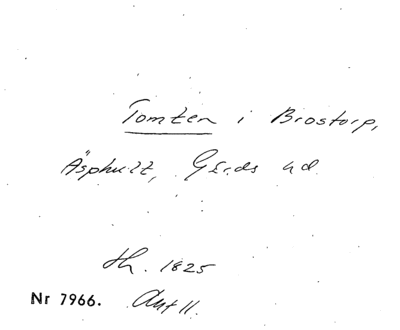 Tomten i Brostorp,
Äsphult, Gärds hd
th. 1825
Nr 7966. Avt 11.